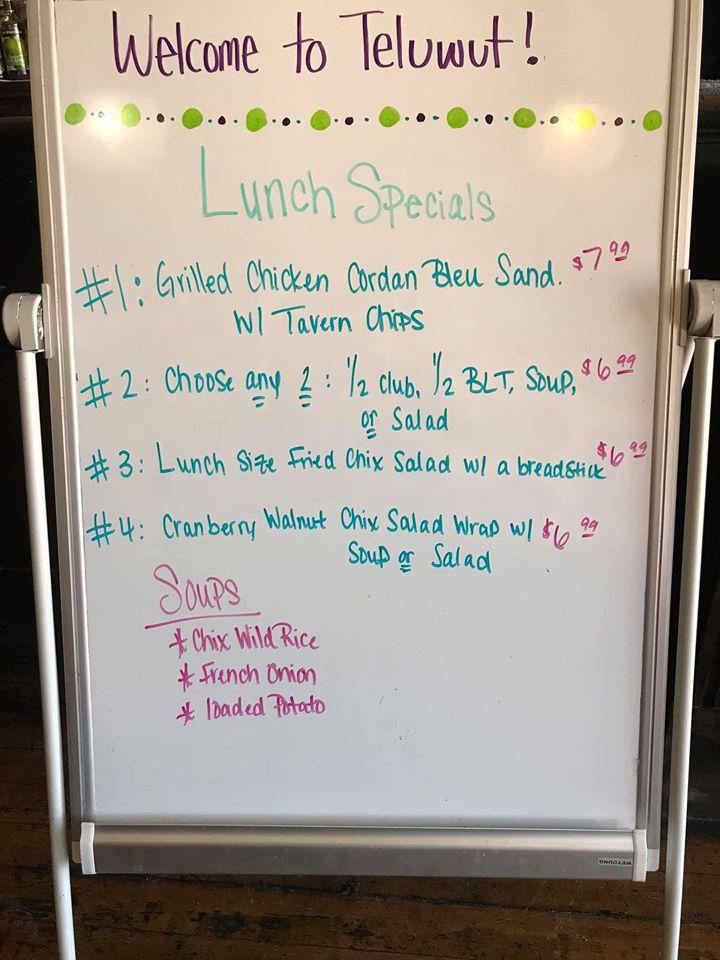 Welcome to Teluwut!
Lunch Specials
#1: Grilled Chicken Cordan Bleu Sand. $7.99
W/ Tavern Chips
#2: Choose any 2: 1/2 club, 1/2 BLT, Soup, $6.99
or Salad
#3: Lunch Size Fried Chix Salad w/ a breadstick $6.99
#4: Cranberry Walnut Chix Salad Wrap w/ $6.99
Soup or Salad
Soups
* Chix Wild Rice
* French Onion
* loaded Potato
WEYOUNG